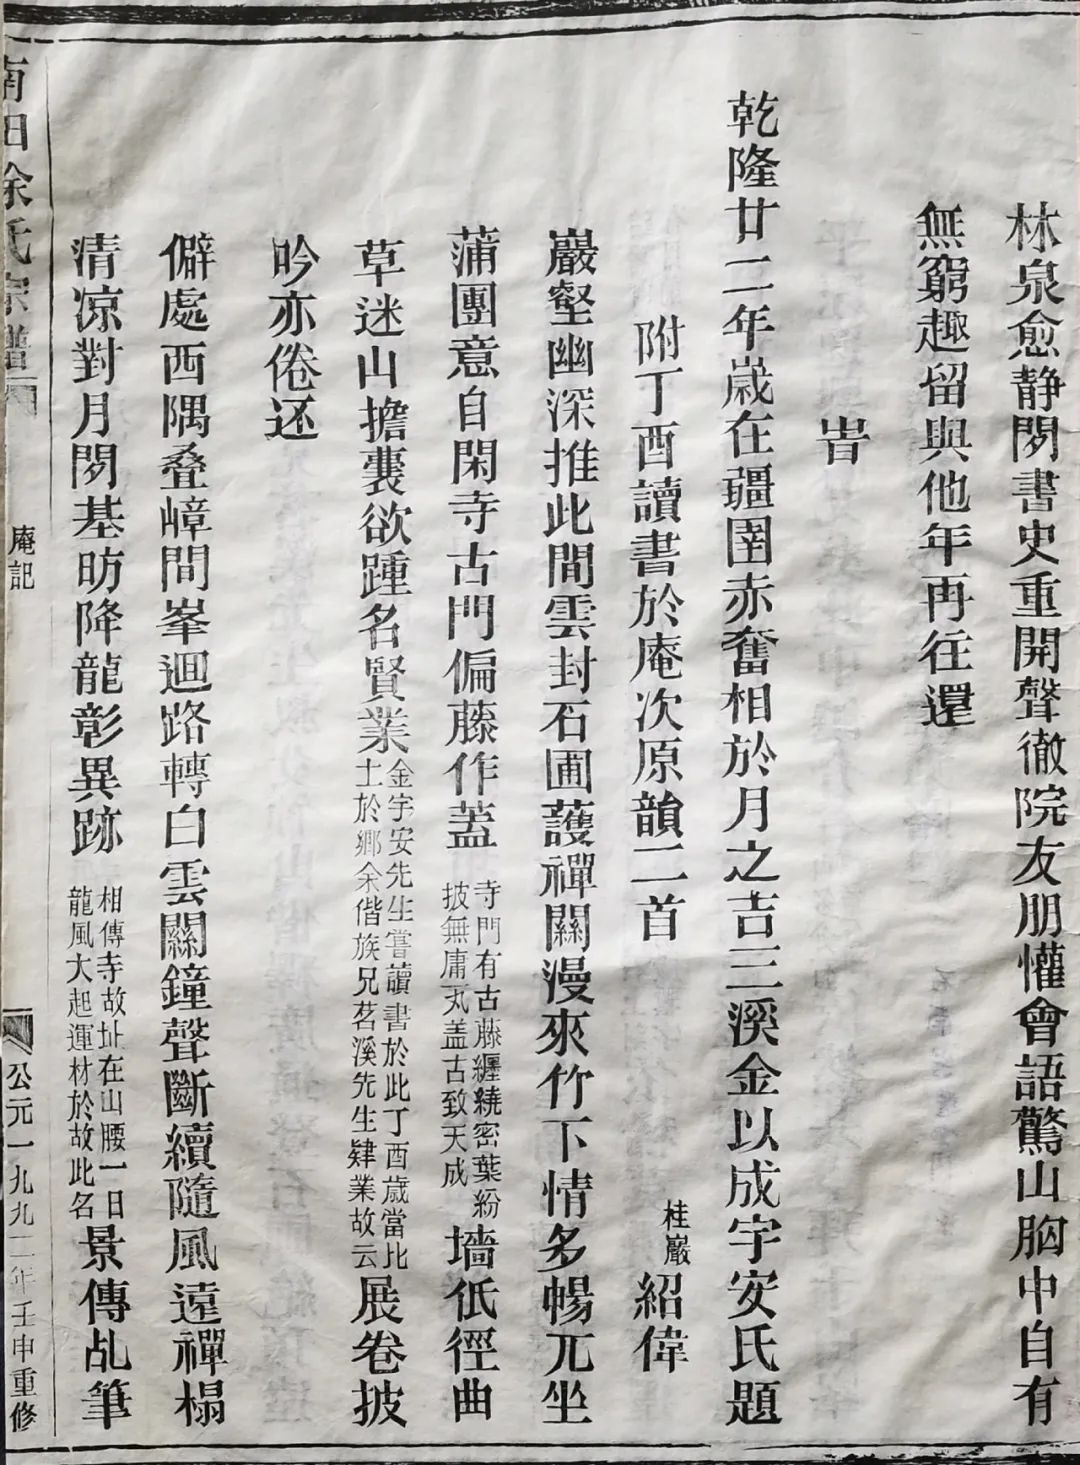 林泉愈静閱書史重開聲徹院友朋懽會語驚山胸中自有
無窮趣留與他年再往還
旹
乾隆廿二年歲在疆圉赤奮相於月之吉三溪金以成宇安氏題
附丁酉讀書於庵次原韻二首
桂巖
紹偉
巖壑幽深推此間雲封石圃護禪關漫來竹下情多暢兀坐
蒲團意自閑寺古門偏藤作蓋
寺門有古藤纒繞密葉紛
披無庸瓦盖古致天成
墻低徑曲
草迷山擔囊欲踵名賢業
金宇安先生嘗讀書於此丁酉歲當比
士於鄉余偕族兄茗溪先生肄業故云
展卷披
吟亦倦还
僻處西隅叠嶂間峯迴路轉白雲關鐘聲斷續隨風遠禪榻
清凉對月閱基昉降龍彰異跡
相傳寺故址在山腰一日
龍風大起運材於故此名
景傳乩筆
南田徐氏宗譜
庵記
公元一九九二年壬申重修